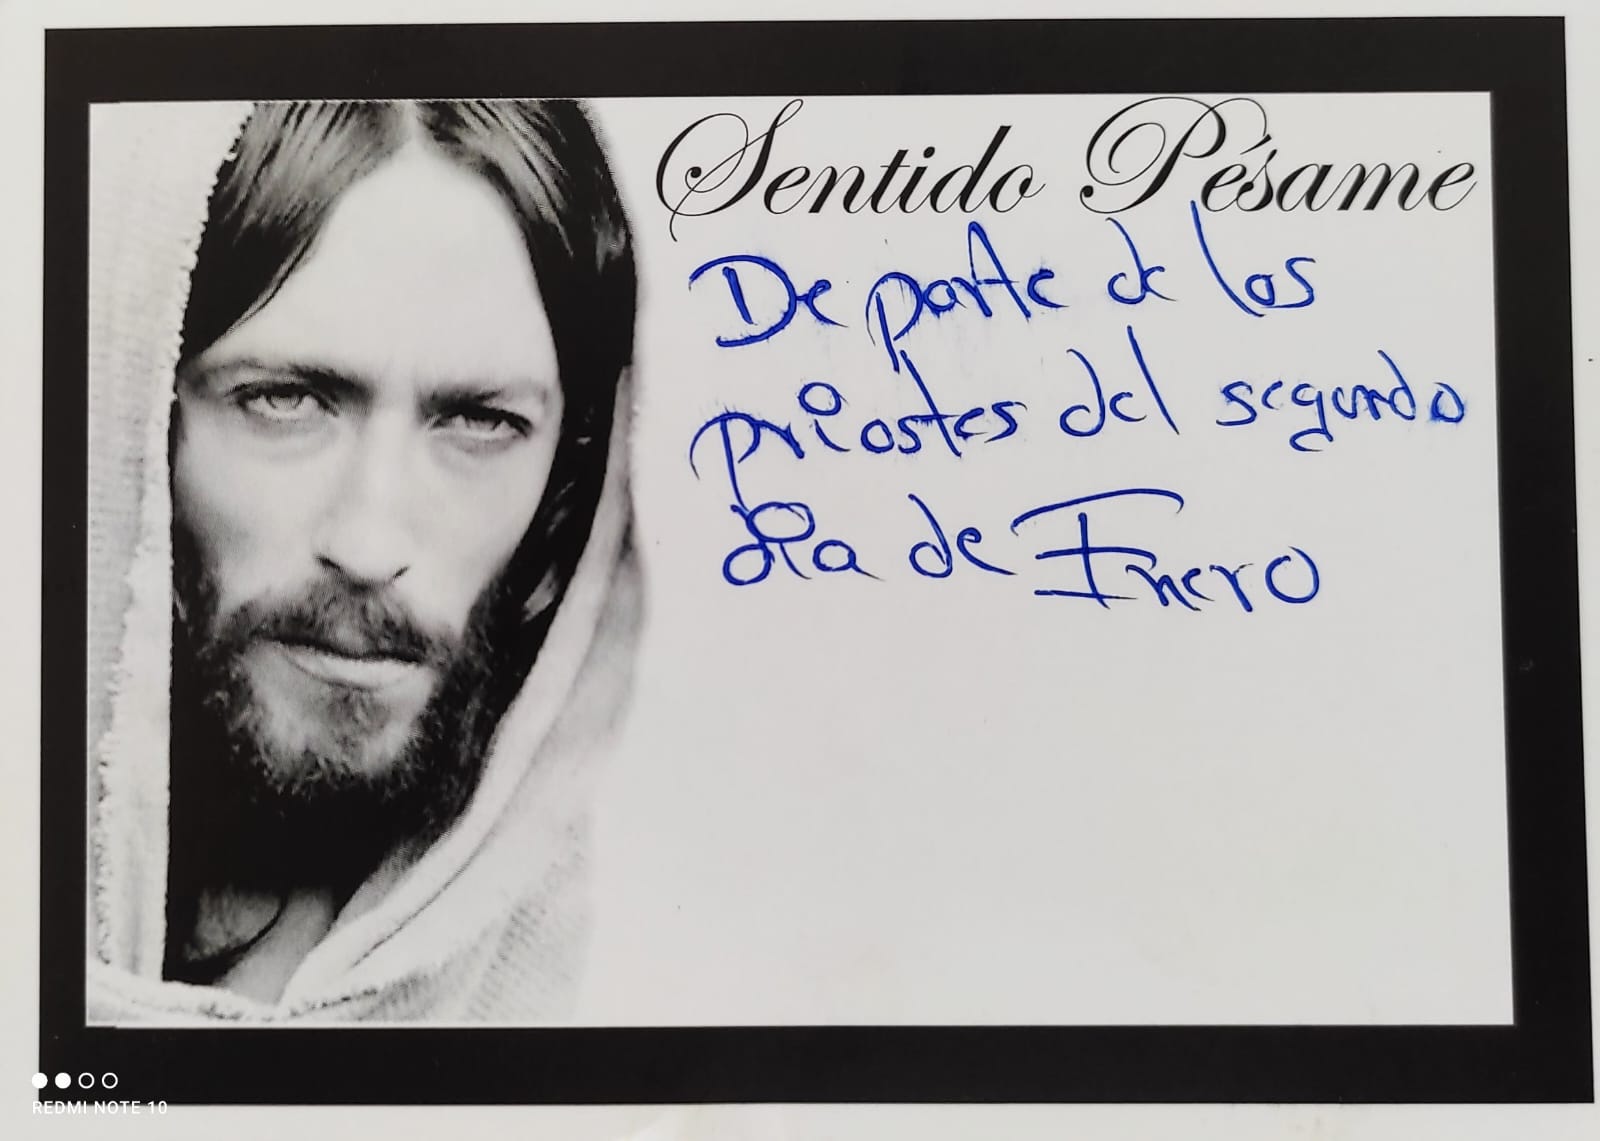 Sentido Pésame
De parte de los
priostes del segundo
dia de Enero
REDMI NOTE 10